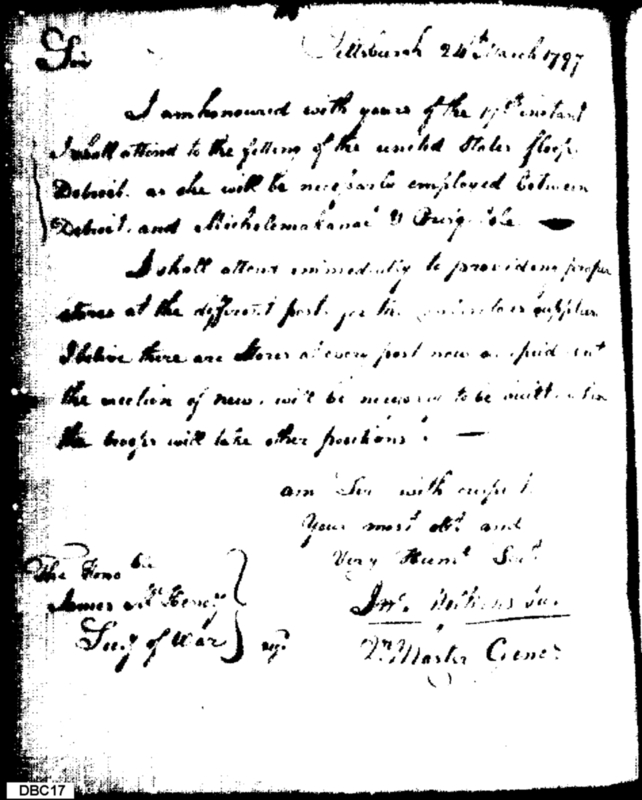 Sir
Pittsburgh 24th March 1797
I am honoured with yours of the 17th instant
I shall attend to the fitting of the united States sloop
Detroit, as she will be necessarly employed between
Detroit, and Michelemakanac & Presq' Isle
I shall attend immediatly to providing proper
stores at the different posts for the supplies
I belive there are Stores at every post now
the erection of new will be necessary to be until when
the troops will take other positions.
am Sir with respect
Your most obt and
Very Humb Servt
Jno. Wilkins Jur.
Qr. Master Genel
The Honoble
James McHenry
Secy of War
DBC17